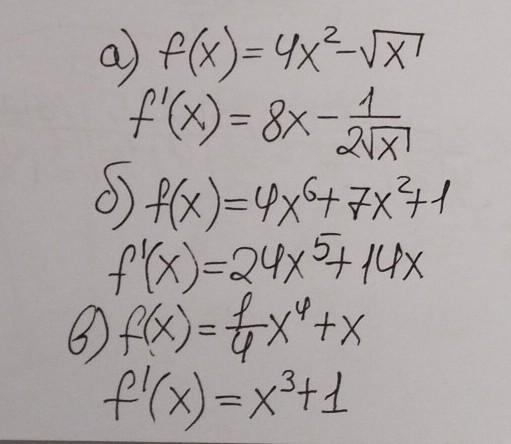 а) f(x) = 4x² - √x
f'(x) = 8x - 1/(2√x)
б) f(x) = 4x⁶ + 7x² + 1
f'(x) = 24x⁵ + 14x
в) f(x) = 1/4 x⁴ + x
f'(x) = x³ + 1